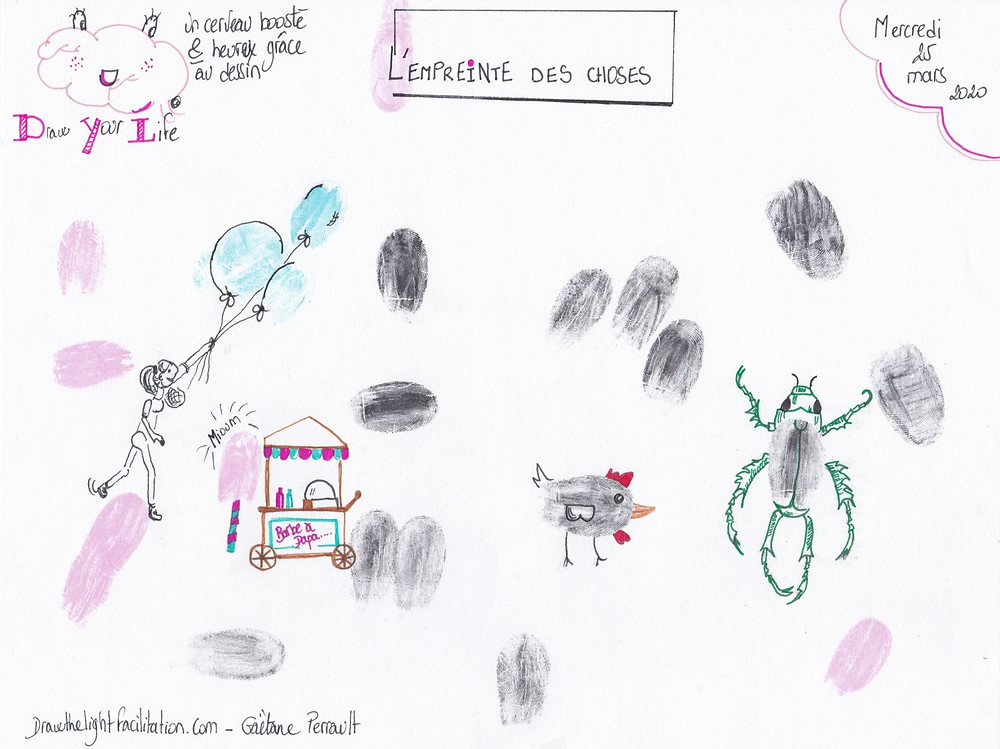 un cerveau boosté
& heureux grâce
au dessin
Draw Your Life
L'EMPREINTE DES CHOSES
Mercredi
25
mars
2020
Mioum
Barbe à
papa....
Drawthelightfacilitation.com - Gaëtane Perrault